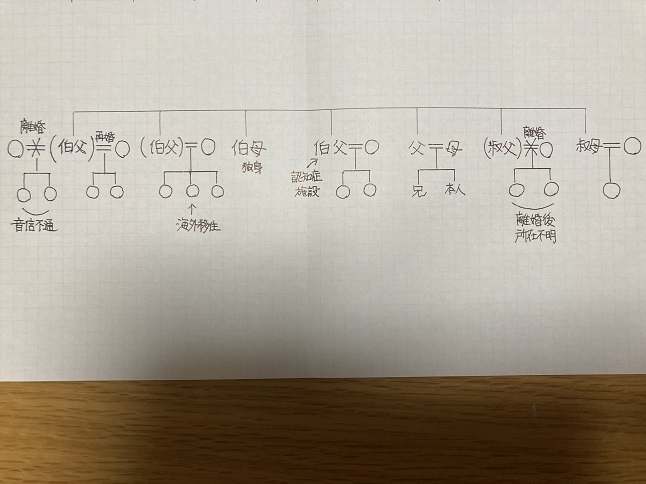 離婚
(伯父)
再婚
(伯父)
伯母
独身
伯父
認知症
施設
父
母
(叔父)
離婚
叔母
兄
本人
音信不通
海外移住
離婚後
所在不明